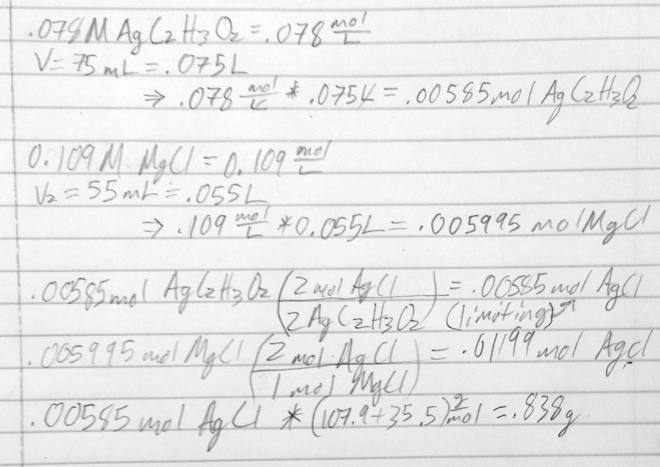 .078M AgC2H3O2 = .078 mol/L
V = 75 mL = .075L
⇒ .078 mol/L * .075L = .00585 mol AgC2H3O2
0.109 M MgCl = 0.109 mol/L
V2 = 55 mL = .055L
⇒ .109 mol/L * 0.055L = .005995 mol MgCl
.00585 mol AgC2H3O2 (2 mol AgCl / 2 AgC2H3O2) = .00585 mol AgCl (limiting)
.005995 mol MgCl (2 mol AgCl / 1 mol MgCl) = .01199 mol AgCl
.00585 mol AgCl * (107.9+35.5) g/mol = .838g